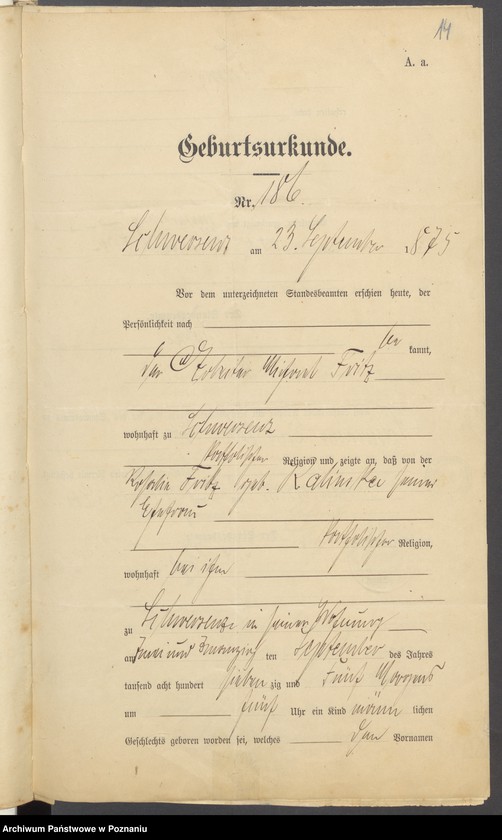 14
A. a.
Geburtsurkunde.
Nr. 186.
Schwersenz am 23. September 1875
Vor dem unterzeichneten Standesbeamten erschien heute, der
Persönlichkeit nach
be kannt,
der Arbeiter Michael Fritz
wohnhaft zu Schwersenz
katholischer Religion und zeigte an, daß von der
Rosalie Fritz geb. Kalinska seiner
Ehefrau
katholischer Religion,
wohnhaft bei ihm
zu Schwersenz in seiner Wohnung
am zwei und zwanzig ten September des Jahres
tausend acht hundert sieben zig und fünf Morgens
um fünf Uhr ein Kind männ lichen
Geschlechts geboren worden sei, welches den Vornamen
Archiwum Państwowe w Poznaniu